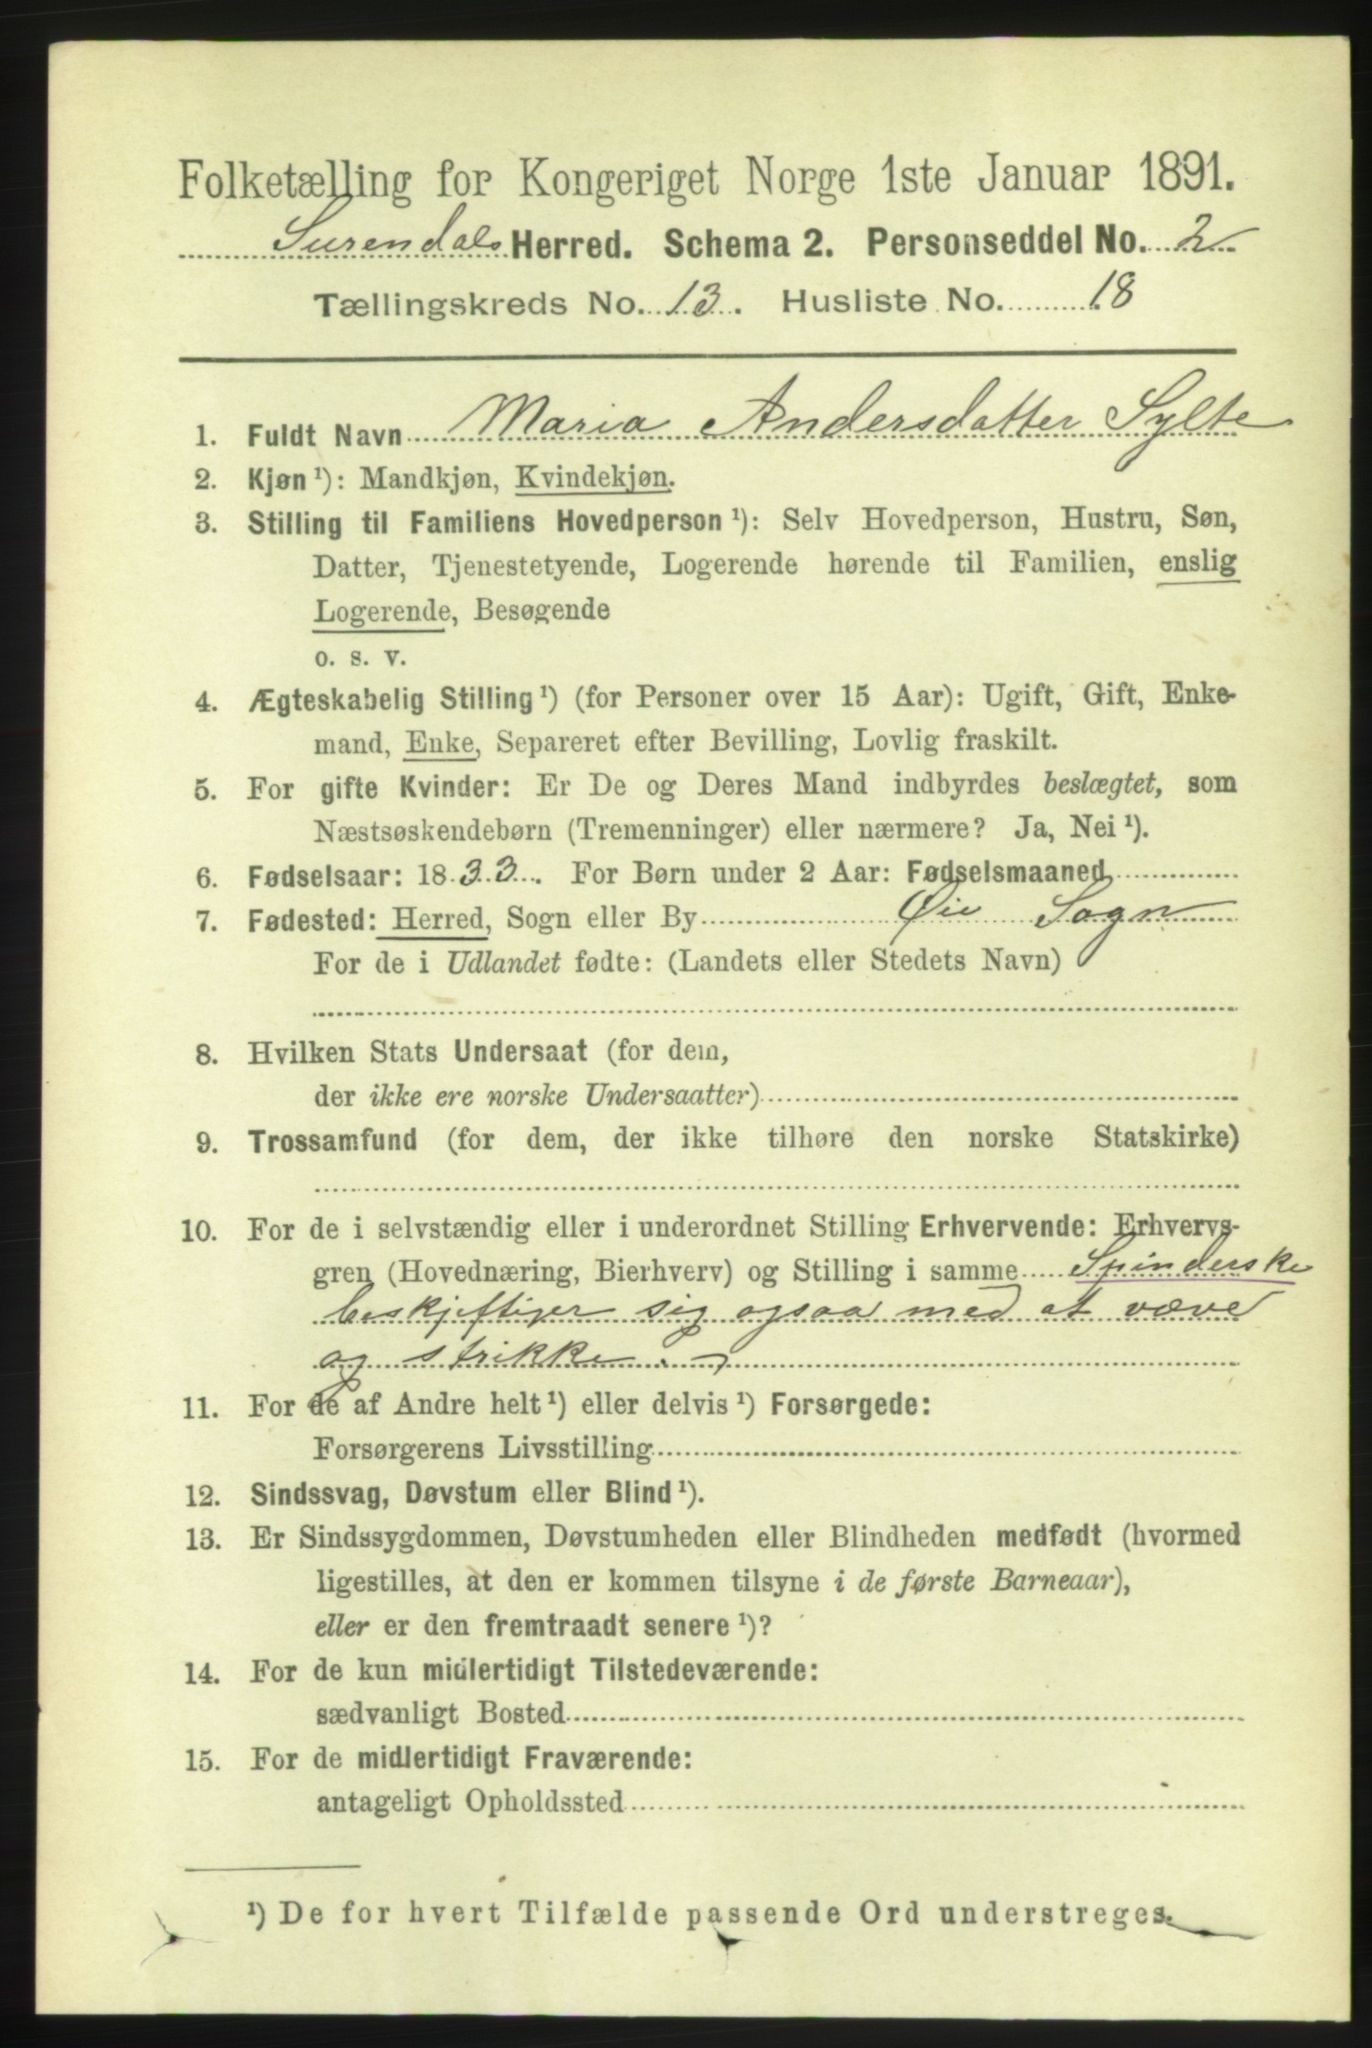 Folketælling for Kongeriget Norge 1ste Januar 1891.
Surendals Herred. Schema 2. Personseddel No. 2
Tællingskreds No. 13. Husliste No. 18
1. Fuldt Navn Maria Andersdatter Sylte
2. Kjøn ¹): Mandkjøn, Kvindekjøn.
3. Stilling til Familiens Hovedperson ¹): Selv Hovedperson, Hustru, Søn,
Datter, Tjenestetyende, Logerende hørende til Familien, enslig
Logerende, Besøgende
o. s. v.
4. Ægteskabelig Stilling ¹) (for Personer over 15 Aar): Ugift, Gift, Enke-
mand, Enke, Separeret efter Bevilling, Lovlig fraskilt.
5. For gifte Kvinder: Er De og Deres Mand indbyrdes beslægtet, som
Næstsøskendebørn (Tremenninger) eller nærmere? Ja, Nei ¹).
6. Fødselsaar: 1833. For Børn under 2 Aar: Fødselsmaaned
7. Fødested: Herred, Sogn eller By Øie Sogn
For de i Udlandet fødte: (Landets eller Stedets Navn)
8. Hvilken Stats Undersaat (for dem,
der ikke ere norske Undersaatter)
9. Trossamfund (for dem, der ikke tilhøre den norske Statskirke)
10. For de i selvstændig eller i underordnet Stilling Erhvervende: Erhvervs-
gren (Hovednæring, Bierhverv) og Stilling i samme Spinderske
beskjeftiger sig ogsaa med at væve
og strikke.
11. For de af Andre helt ¹) eller delvis ¹) Forsørgede:
Forsørgerens Livsstilling
12. Sindssvag, Døvstum eller Blind ¹).
13. Er Sindssygdommen, Døvstumheden eller Blindheden medfødt (hvormed
ligestilles, at den er kommen tilsyne i de første Barneaar),
eller er den fremtraadt senere ¹)?
14. For de kun midlertidigt Tilstedeværende:
sædvanligt Bosted
15. For de midlertidigt Fraværende:
antageligt Opholdssted
¹) De for hvert Tilfælde passende Ord understreges.